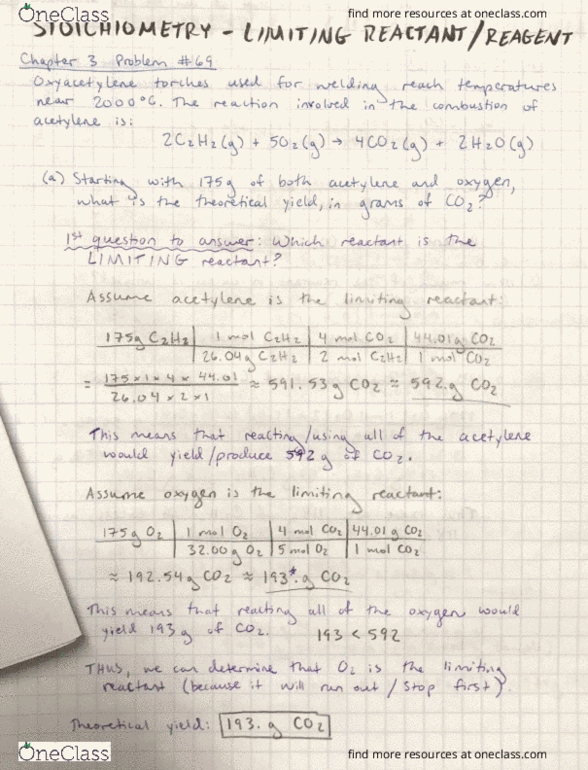 OneClass
find more resources at oneclass.com
STOICHIOMETRY - LIMITING REACTANT/REAGENT
Chapter 3 Problem #69
Oxyacetylene torches used for welding reach temperatures
near 2000°C. The reaction involved in the combustion of
acetylene is:
2C₂H₂(g) + 5O₂(g) → 4CO₂(g) + 2H₂O(g)
(a) Starting with 175g of both acetylene and oxygen,
what is the theoretical yield, in grams of CO₂?
1st question to answer: Which reactant is the
LIMITING reactant?
Assume acetylene is the limiting reactant:
175g C₂H₂ | 1 mol C₂H₂ | 4 mol CO₂ | 44.01g CO₂
26.04g C₂H₂ | 2 mol C₂H₂ | 1 mol CO₂
= 175×1×4×44.01 ≈ 591.53g CO₂ ≈ 592.g CO₂
26.04×2×1
This means that reacting/using all of the acetylene
would yield/produce 592 g of CO₂.
Assume oxygen is the limiting reactant:
175g O₂ | 1 mol O₂ | 4 mol CO₂ | 44.01g CO₂
32.00g O₂ | 5 mol O₂ | 1 mol CO₂
≈ 192.54g CO₂ ≈ 193*.g CO₂
This means that reacting all of the oxygen would
yield 193g of CO₂. 193 < 592
THUS, we can determine that O₂ is the limiting
reactant (because it will run out / stop first).
Theoretical yield: 193. g CO₂
OneClass
find more resources at oneclass.com